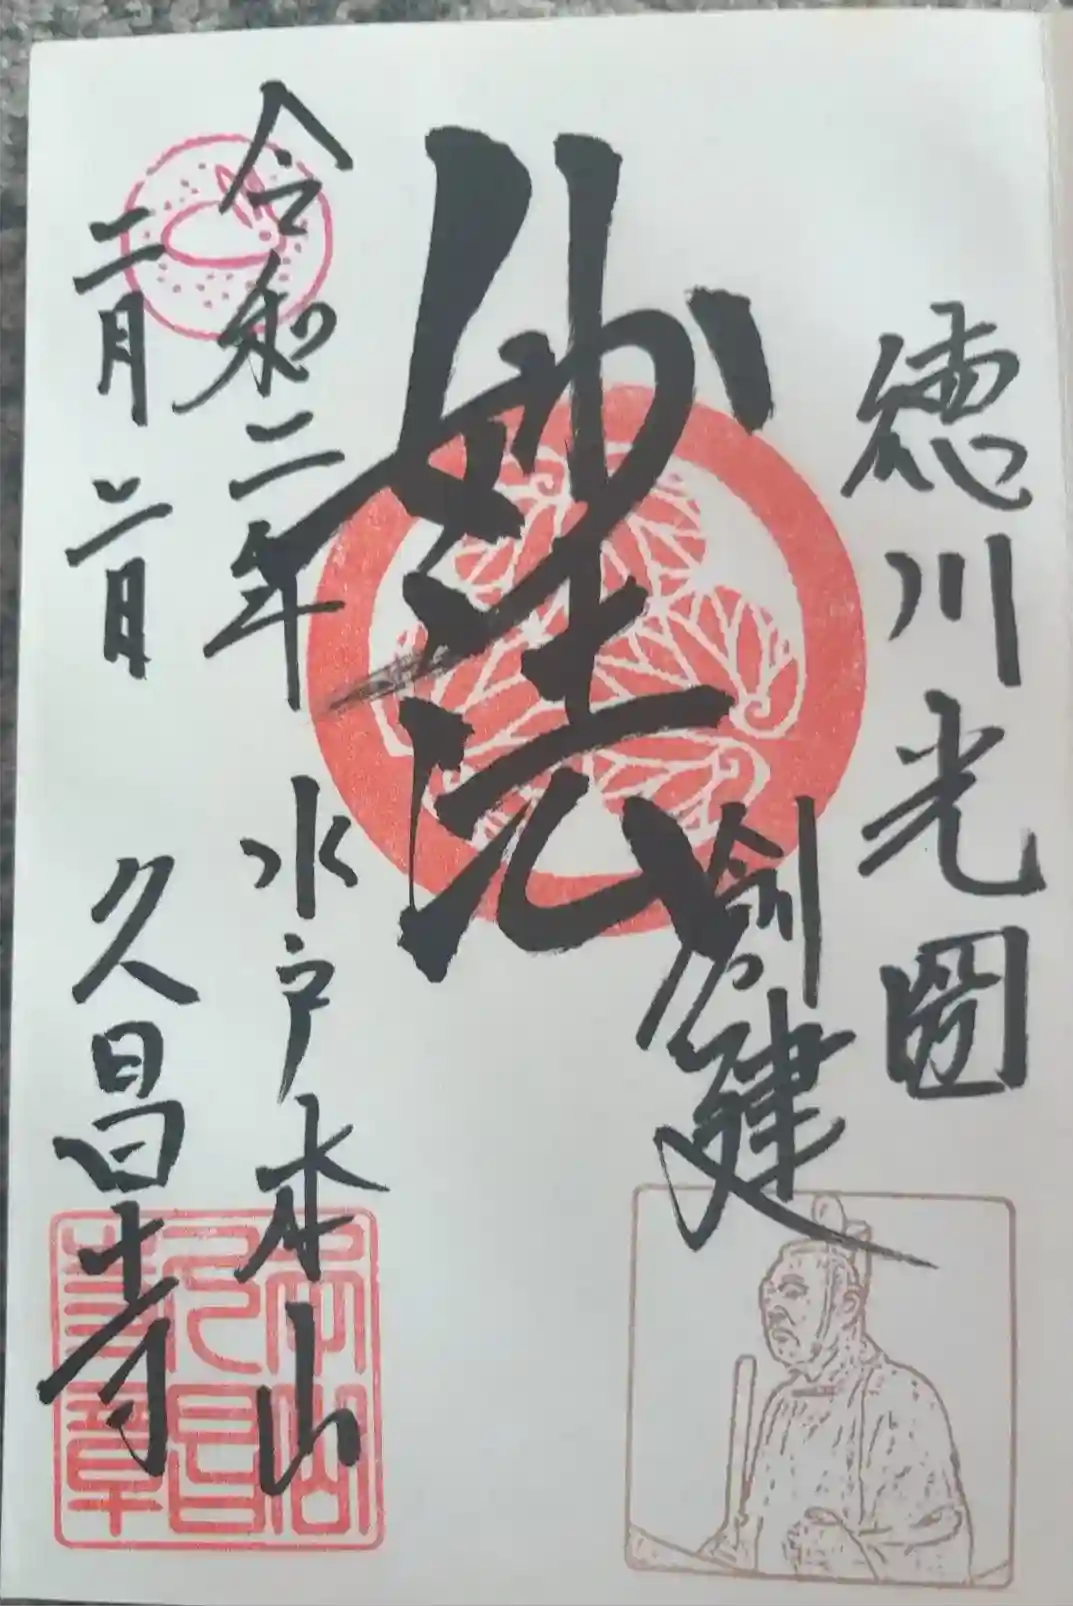 徳川光圀
創建
妙法
令和二年
二月三日
水戸本山
久昌寺
久昌
寺章